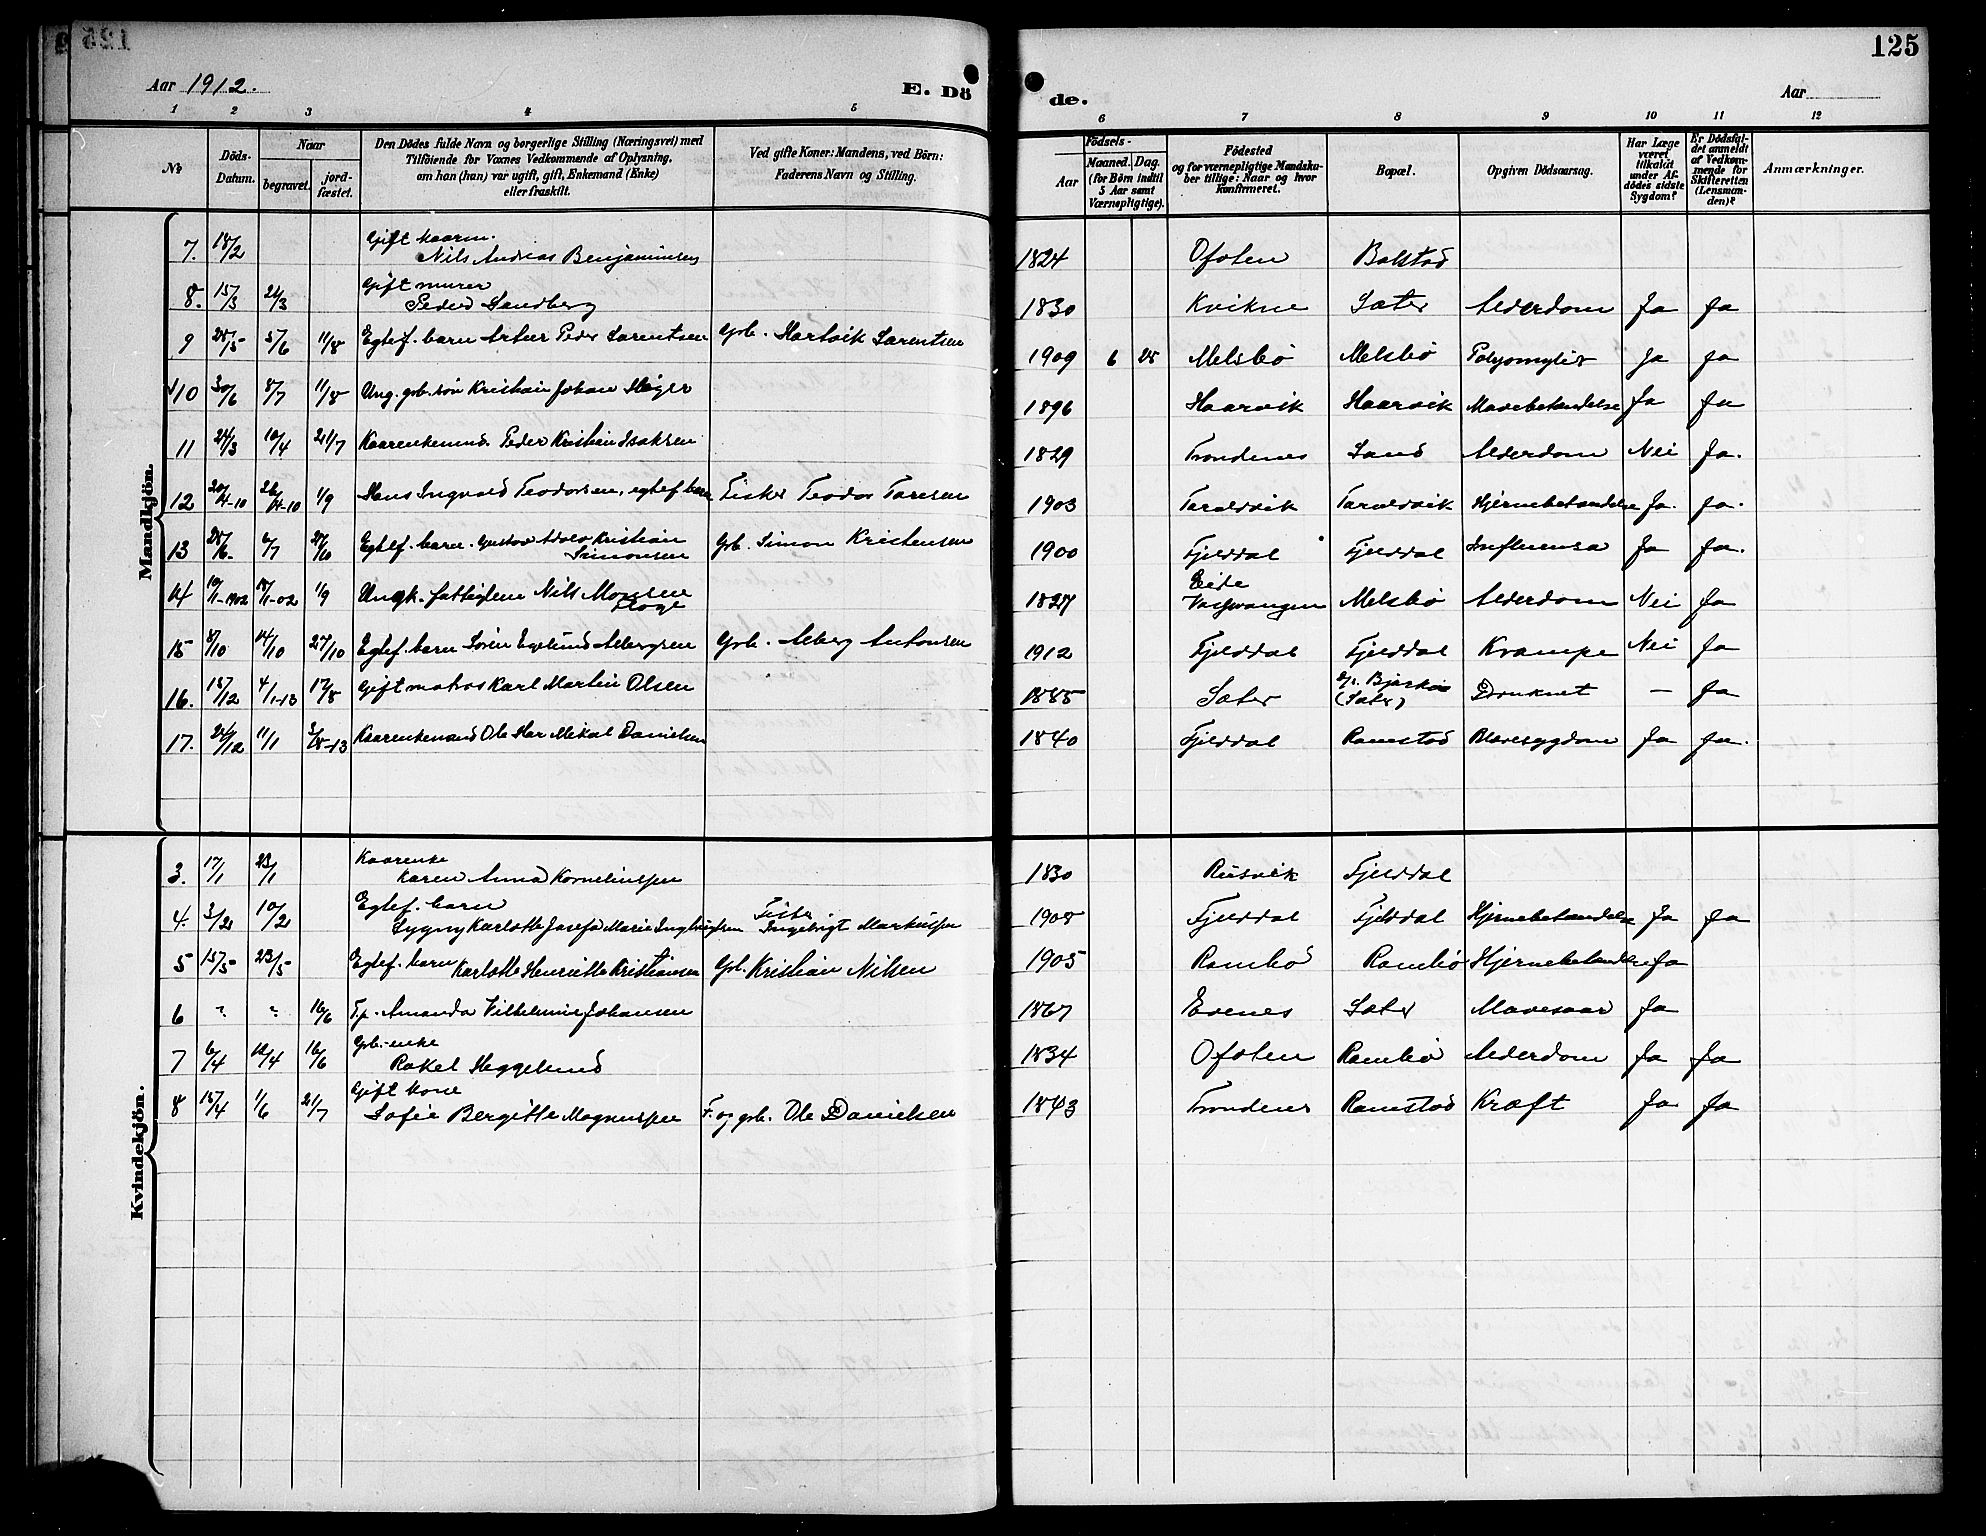 125
Aar 1912.
E. Dö
de.
Aar
1 2 3 4 5
6 7 8 9 10 11 12
No
Döds-
Datum.
Naar
begravet.
jord-
fæstet.
Den Dödes fulde Navn og borgerlige Stilling (Næringsvei) med
Tilföiende for Voxnes Vedkommende af Oplysning,
om han (hun) var ugift, gift, Enkemand (Enke)
eller fraskilt.
Ved gifte Koner: Mandens, ved Börn:
Faderens Navn og Stilling.
Födsels-
Aar
Maaned. Dag.
(for Börn indtil
5 Aar samt
Værnepligtige).
Födested
og for værnepligtige Mandska-
ber tillige: Naar og hvor
konfirmeret.
Bopæl.
Opgiven Dödsaarsag.
Har Læge
været
tilkaldt
under Af-
dödes sidste
Sygdom?
Er Dödsfal-
det anmeldt
af Vedkom-
mende for
Skifteretten
(Lensman-
den)?
Anmærkninger.
Mandkjön.
7. 18/2 Gift kaarm.
Nils Andreas Benjaminsen 1824 Ofoten Bolstad
8. 15/3 21/3 Gift murer
Peder Sandberg 1830 Kvikne Sæter Alderdom Ja Ja
9 28/5 5/6 11/8 Egtef. barn Artur Peder Larentsen Grb. Hartvik Larentsen 1909 6 25 Melsbö Melsbö Polyomylit Ja Ja
10 30/6 8/7 11/8 Ung. grb. sön Kristian Johan Heger 1896 Haarvik Haarvik Mavebetændelse Ja Ja
11 24/3 10/4 21/7 Kaarenkemd. Peder Kristian Isaksen 1829 Trondenes Sand Alderdom Nei Ja.
12 20/4-10 26/4-10 1/9 Hans Ingvald Teodorsen, egtef. barn Fisker Teodor Toresen 1903 Taraldvik Taraldvik Hjernebetændelse Ja. Ja.
13 28/6. 6/7 27/10 Egtef. barn. Gustav Adolo Kristian
Simonsen Grb. Simon Kristensen 1900 Fjelddal Fjelddal Influensa Ja Ja.
14 10/1-1902 18/1-02 1/9 Ungk. fattiglem Nils Monsen
Floge 1827 Eide
Vossevangen Melsbö Alderdom Nei Ja
15 8/10 14/10 27/10 Egtef. barn Sören Englund Albergsen Grb. Alberg Antonsen 1912 Fjelddal Fjelddal Krampe Nei Ja
16. 15/12 4/1-13 17/8 Gift matros Karl Martin Olsen 1885 Sæter Gr. Bjarkö
(Sæter) Druknet — Ja
17. 26/12 11/1 3/8-13 Kaarenkemand Ole Har Mikal Danielsen 1840 Fjelddal Ramstad Blæresygdom Ja Ja.
Kvindekjön.
3. 17/1 23/1 Kaarenke
Karen Anna Kornelinspr 1830 Rusvik Fjelddal
4. 3/2 10/2 Egtef. barn
Sygny Karlotte Josefa Marie Ingebrigtsen Fisker
Ingebrigt Markussen 1908 Fjelddal Fjelddal Hjernebetændelse Ja Ja
5 15/5 23/5 Egtef. barn Karlotte Henriette Kristiansen Grb. Kristian Nilsen 1905 Rambö Rambö Hjernebetændelse Ja
6 ? ? 16/6 F.p. Amanda Vilhelmine Johansen 1867 Evenes Sæter Mavesaar Ja
7 6/4 12/4 16/6 Grb.-enke
Rakel Heggelund 1834 Ofoten Rambö Alderdom Ja Ja
8 15/4 1/6 21/7 Gift kone
Sofie Bergitte Magnuspr F. og grb. Ole Danielsen 1843 Trondenes Ramstad Kræft Ja Ja